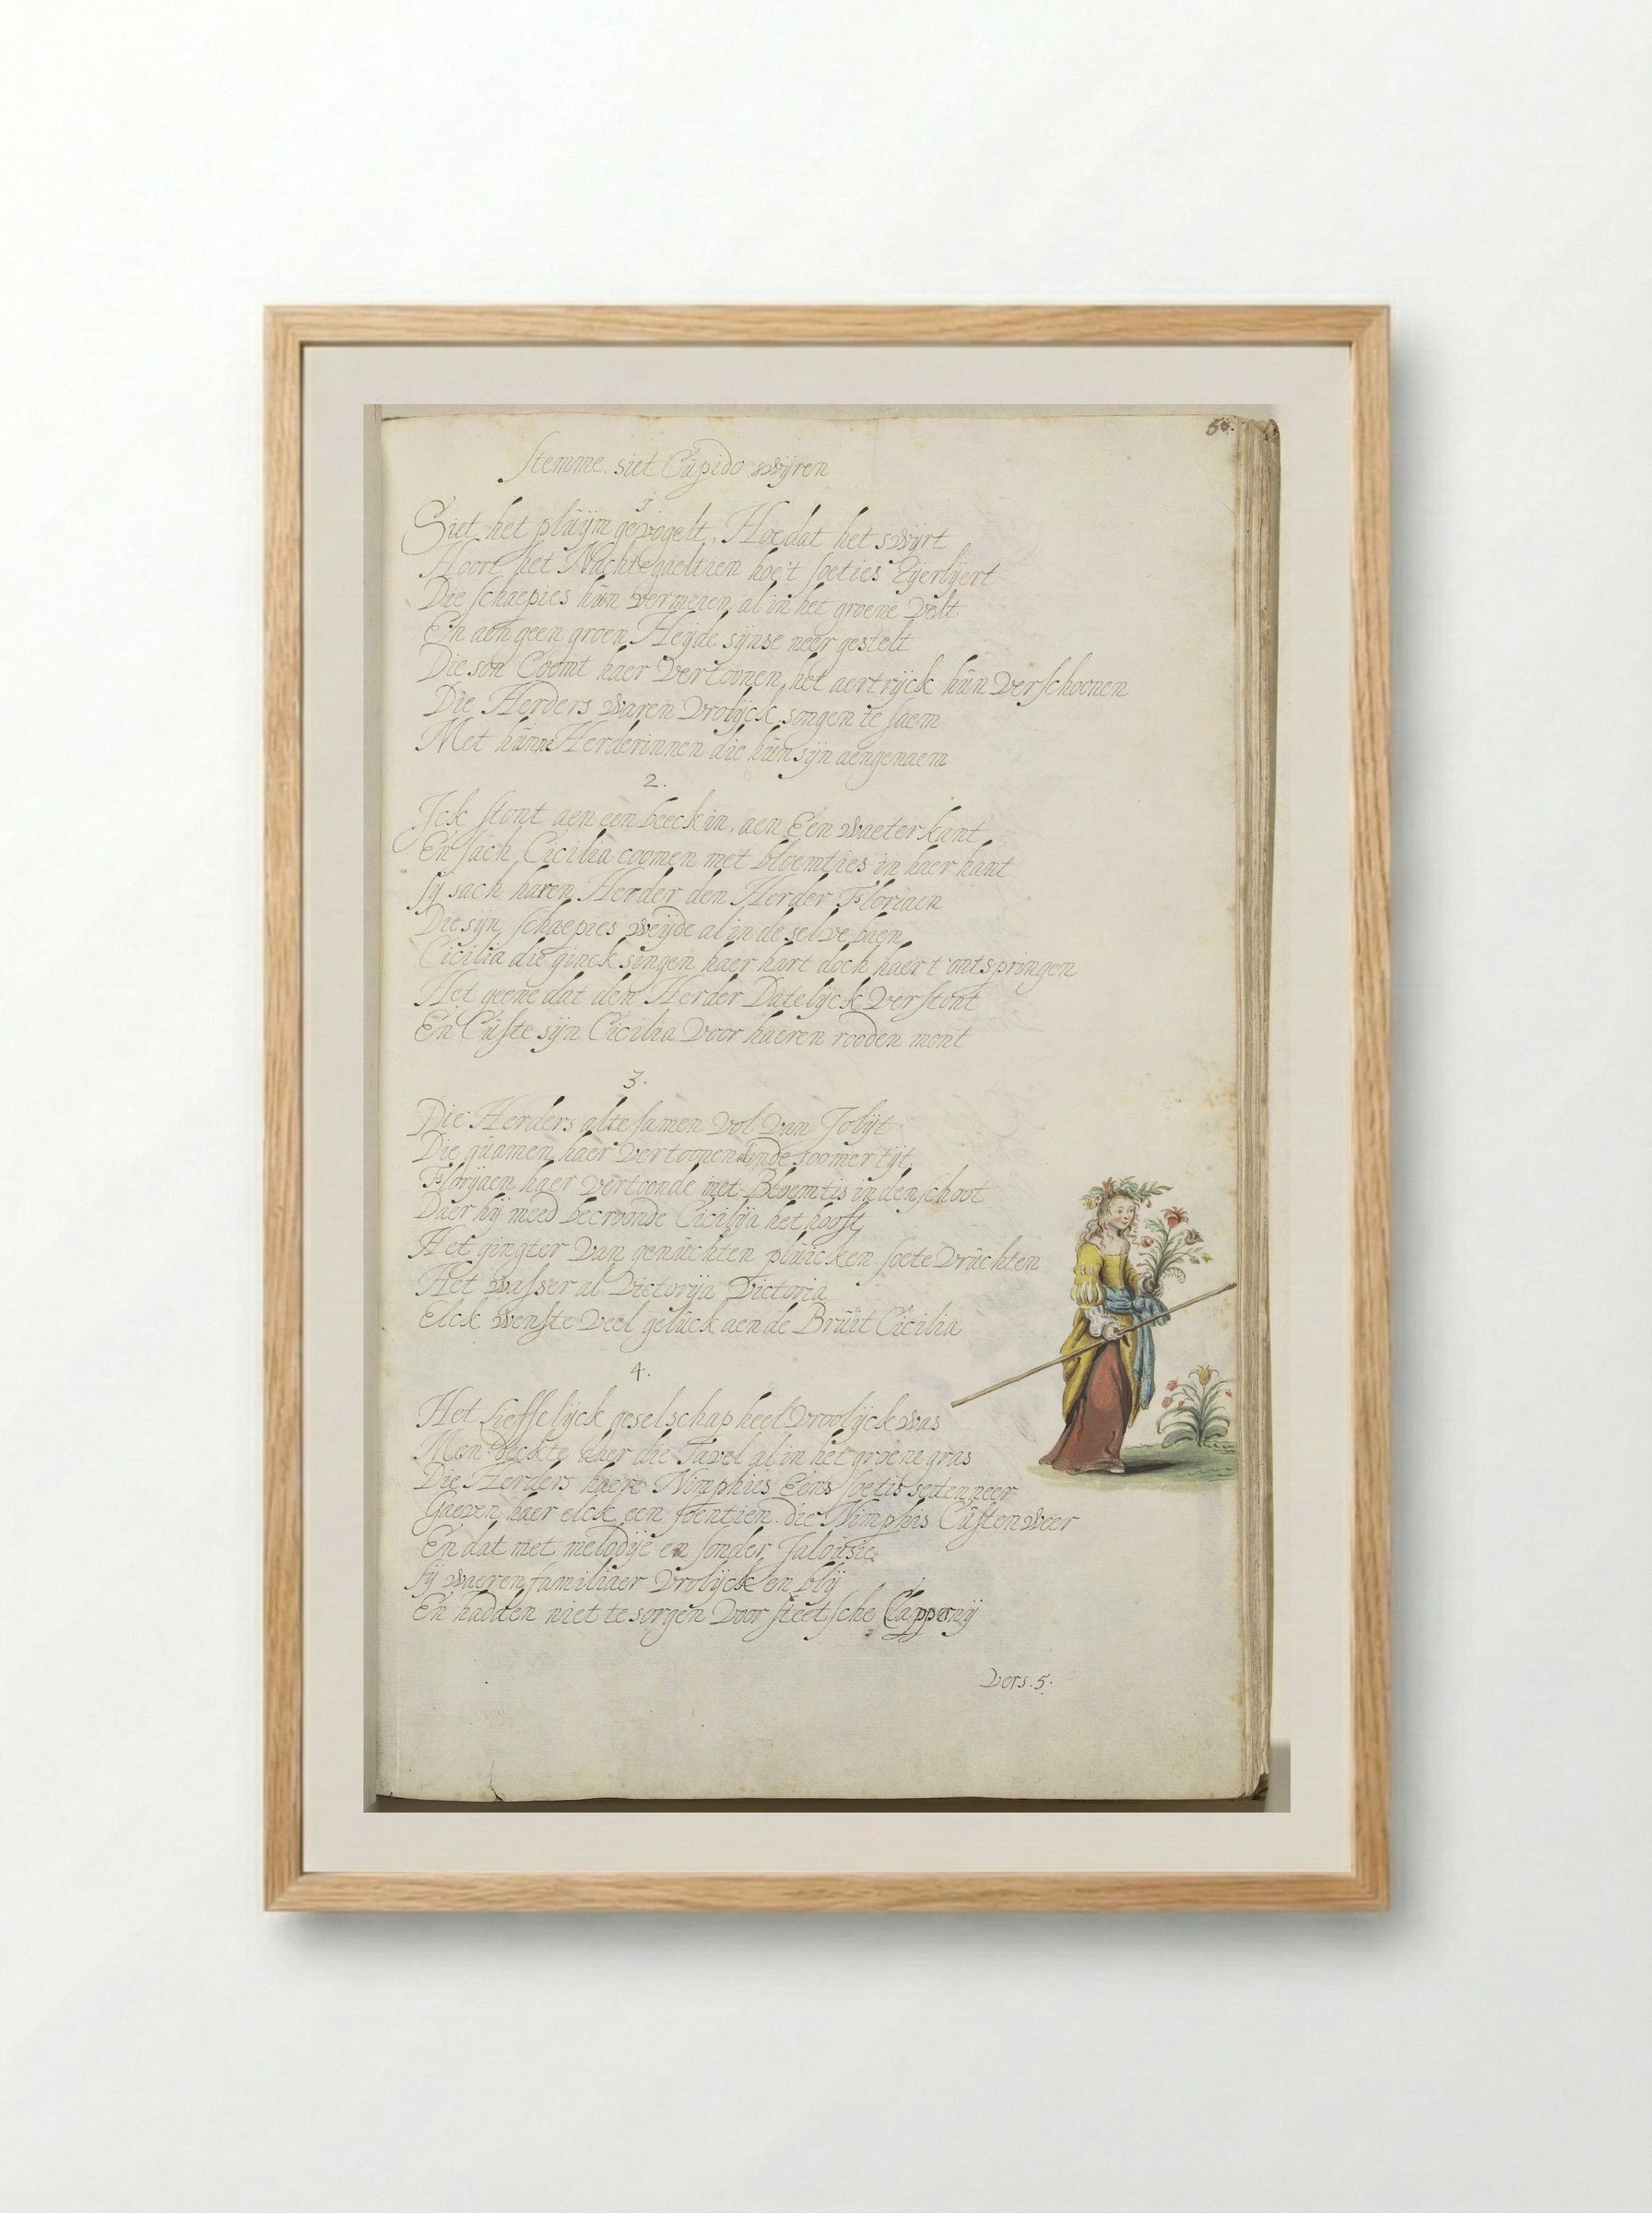 56.
Stemme. siet Cupido swijren
1
Siet het pluijm gevogelt, Hoe dat het swijrt
Hoort het Nachtegaeltien hoe't soeties Tijerlijert
Die schaepies hun vermeien al in het groene Velt
En aen geen groen Heijde sijnse neer gestelt
Die son Coomt haer Vertoonen, het aertrijck hun Verschoonen
Die Herders waren Vrolijck songen te saem
Met hunne Herderinnen die hun sijn aengenaem
2.
Ick stont aen een beeckin, aen Een waeter kant
En sach Cicilia coomen met bloemties in haer hant
Sij sach haren Herder den Herder Floriaen
Die sijn schaepies weijde al in de selve baen
Cicilia die ginck singen haer hart doch haer t'ontspringen
Het geene dat den Herder Datelijck Verstont
En Custe sijn Cicilia Voor haeren rooden mont
3.
Die Herders alte samen Vol Van Jolijt
Die quamen haer Vertoonen inde soomer tijt
Florijaen haer Vertoonde met Bloemtis in den schoot
Daer hij meed becroonde Cicilija het hooft
Het gingter Van genuchten pluicken soete Vruchten
Het wasser al Victorija Victoria
Elck wenste Veel geluck aen de Bruit Cicilia
4.
Het Lieffelijck geselschap heel Vroolijck was
Men deckte daer die Tavel al in het groene gras
Die Herders haere Nimphies Eens soetis setten neer
Gaeven haer elck een soentien. die Nimphis Custen weer
En dat met melodije en sonder Jalousie.
Sij waeren familiaer Vrolijck en blij
En hadden niet te sorgen Voor steetsche Cappernij
Vers. 5.